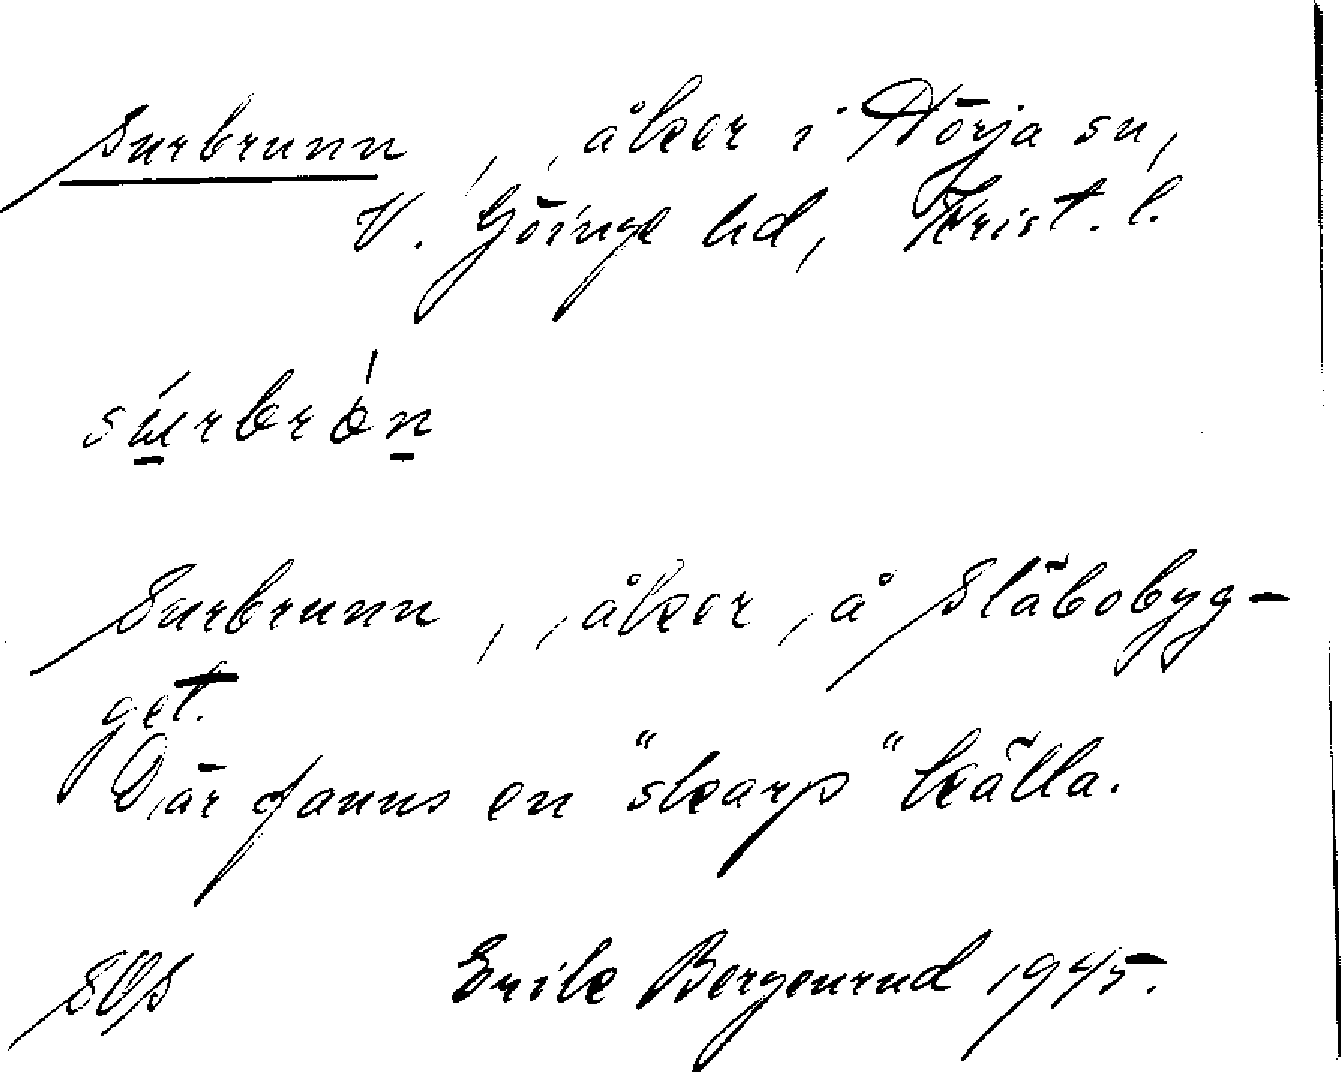 Surbrunn, , åker i Hörja sn,
V. Göinge hd, Krist. l.
sųrbrón
Surbrunn, , åker, å Släbobyg-
get.
Där fanns en "skarp" källa.
SOS Erik Bergenrud 1945.